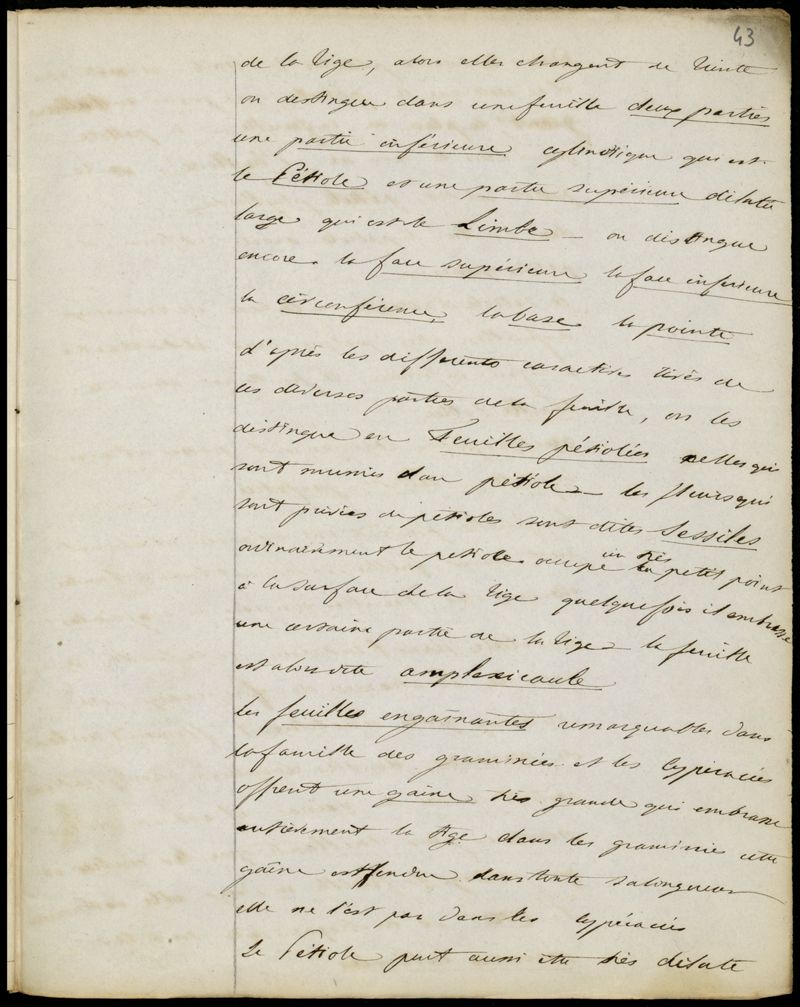 43
de la tige, alors elles changent de teinte
on distingue dans une feuille deux parties
une partie inférieure cylindrique qui est
le Pétiole et une partie supérieure dilatée
large qui est le Limbe — on distingue
encore la face supérieure la face inférieure
la circonférence, la base la pointe
d'après les différents caractères tirés de
ces diverses parties de la feuille, on les
distingue en Feuilles pétiolées celles qui
sont munies d'un pétiole — les fleurs qui
sont privées de pétioles sont dites Sessiles
ordinairement le pétiole occupe un très petit point
à la surface de la tige quelquefois il embrasse
une certaine partie de la tige — la feuille
est alors dite amplexicaule
les feuilles engaînantes remarquables dans
la famille des graminées et les cypéracées
offrent une gaîne très grande qui embrasse
entièrement la tige dans les graminée cette
gaîne est fendue dans toute sa longueur
elle ne l'est pas dans les cypéracées
Le Pétiole peut aussi être très dilaté